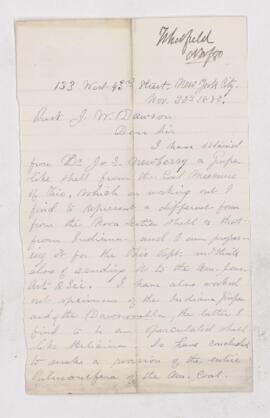 Whitfield
133 West 42nd Street, New York City.
Nov. 20th 1880.
J. W. Dawson
Dear Sir
I have obtained
from Dr. J. S. Newberry a Pupa
like shell from the Coal Measures
of Ohio, which on working out I
find to represent a different form
from the Nova Scotia shell or that
from Indiana and I am prepar-
ing it for the Ohio Rept. with
also of sending it to the Am. Jour.
Art & Sci. I have also worked
out specimens of the Indiana Pupa
and of the Dawsonella, the latter I
find to be an operculated shell
like Helicina. So have concluded
to make a revision of the entire
Pulmonifera of the Am. Coal.